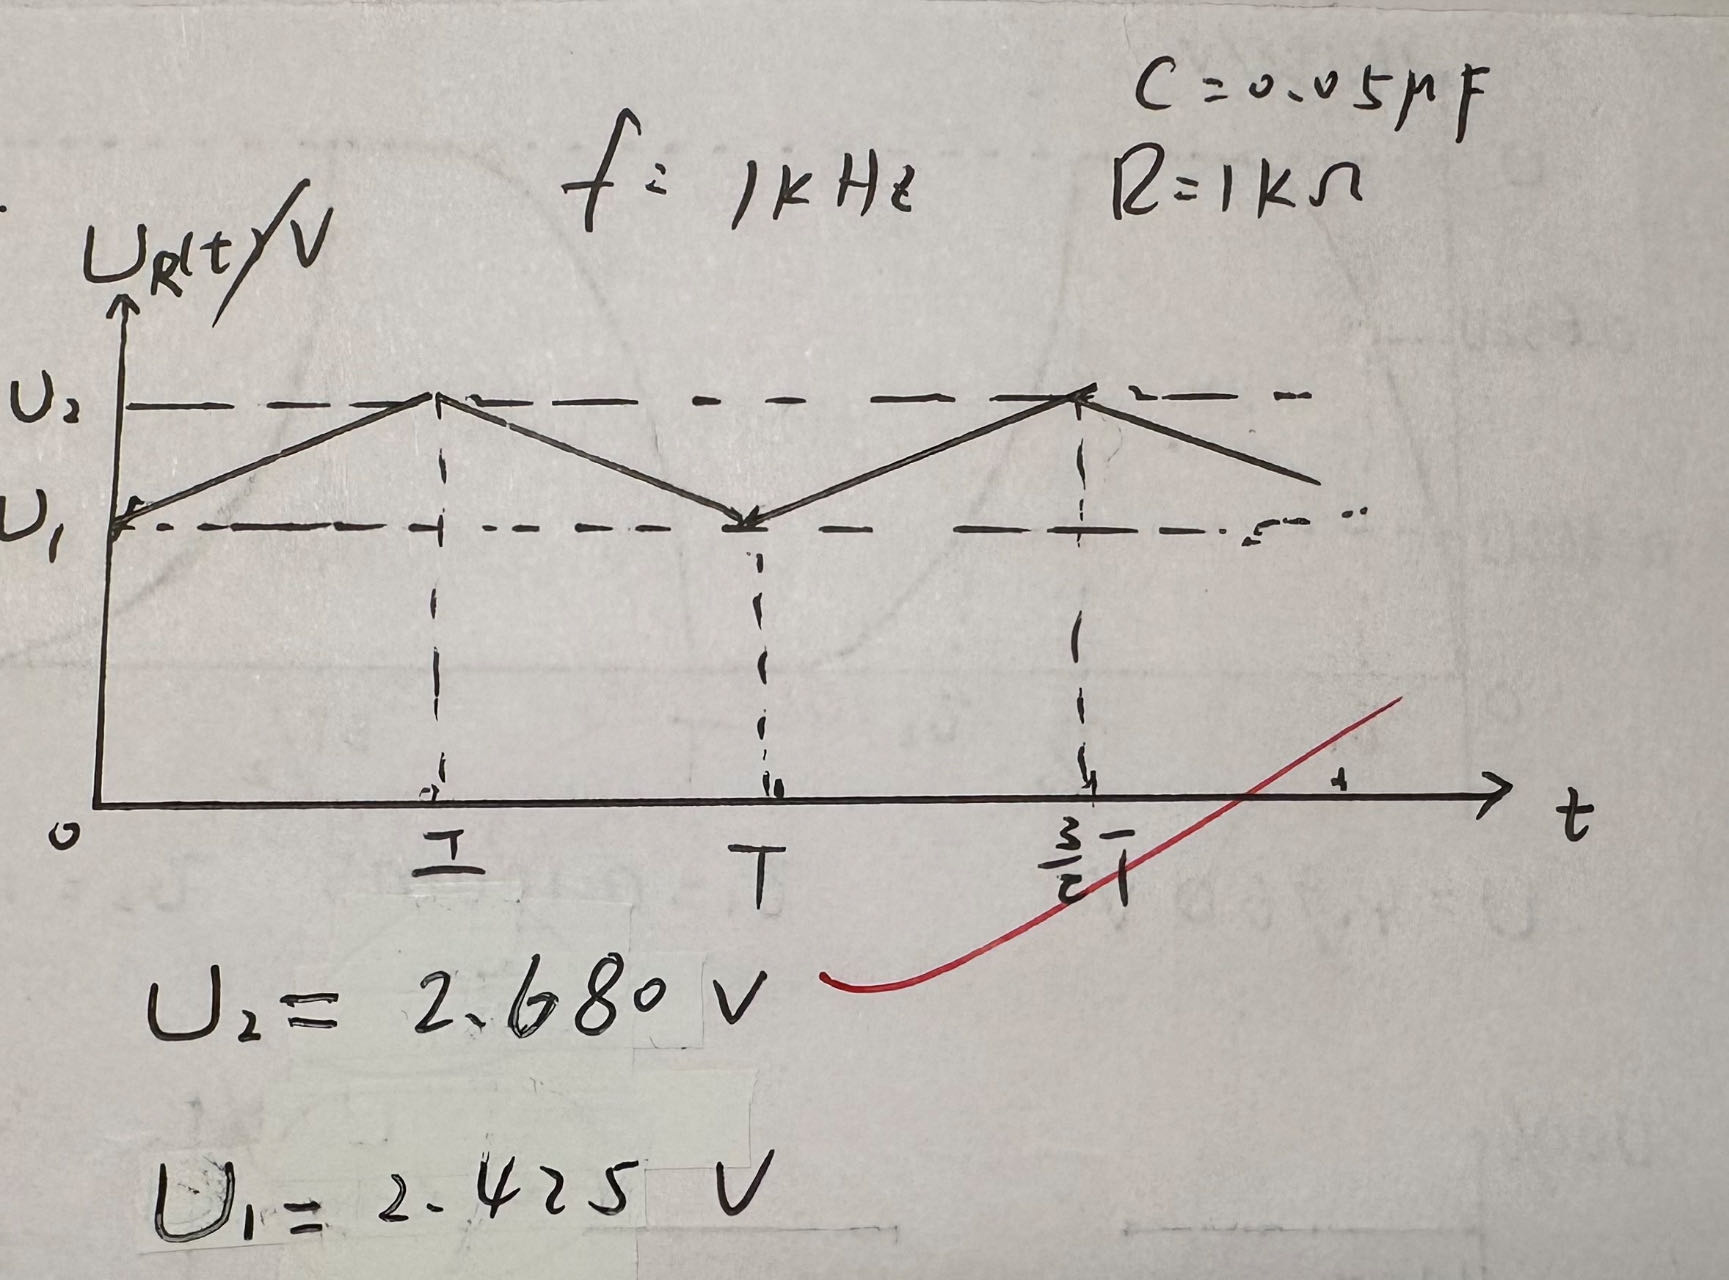 C=0.05μF
f= 1kHz
R=1kΩ
U_R(t)/V
U₂
U₁
0
T
T
3/2 T
t
U₂= 2.680 V
U₁= 2.425 V